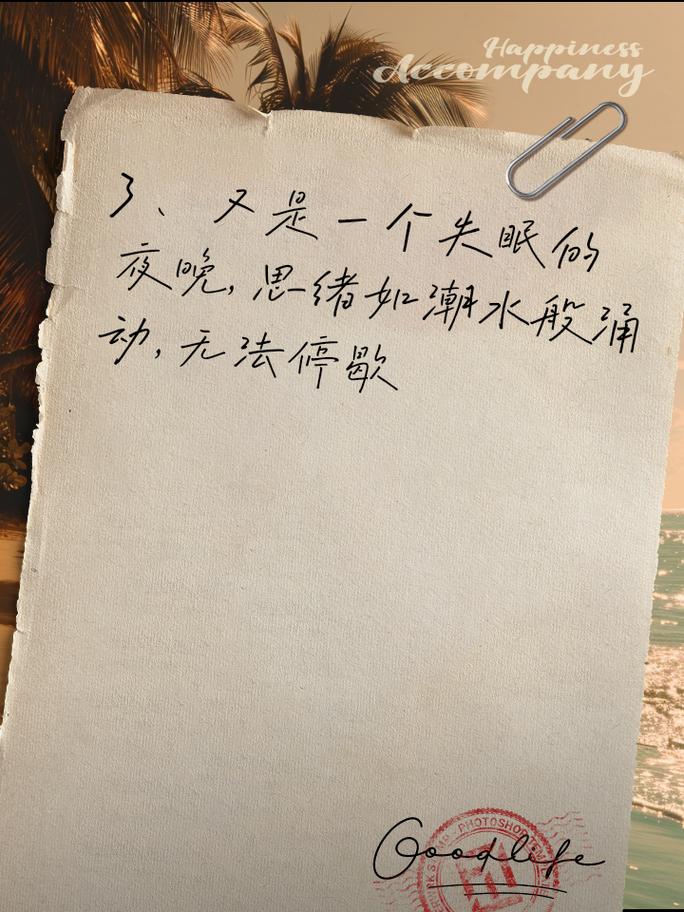 Happiness
Accompany
3、又是一个失眠的
夜晚,思绪如潮水般涌
动,无法停歇
PHOTOSHOP
Goodlife